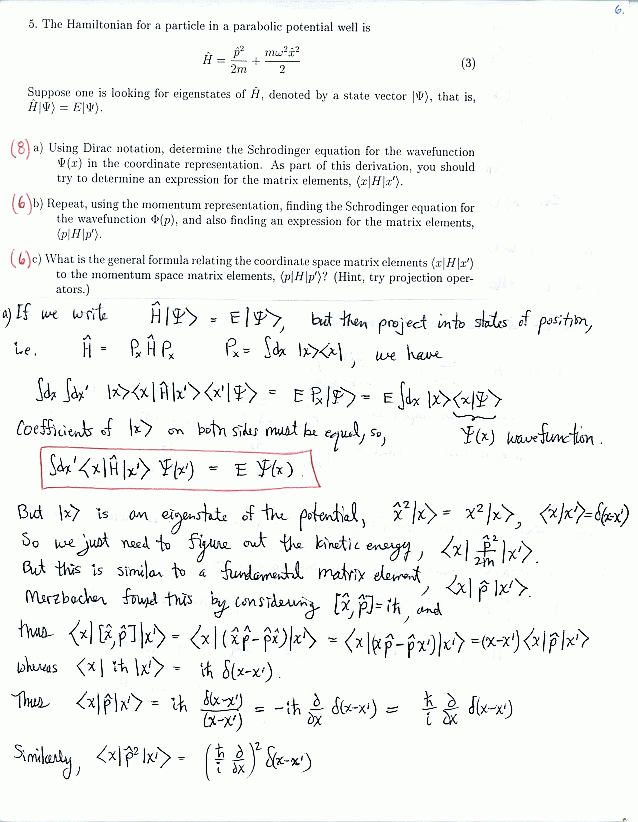 6.
5. The Hamiltonian for a particle in a parabolic potential well is
Ĥ = p̂²/2m + mω²x̂²/2 (3)
Suppose one is looking for eigenstates of Ĥ, denoted by a state vector |Ψ⟩, that is,
Ĥ|Ψ⟩ = E|Ψ⟩.
(8) a) Using Dirac notation, determine the Schrodinger equation for the wavefunction
Ψ(x) in the coordinate representation. As part of this derivation, you should
try to determine an expression for the matrix elements, ⟨x|H|x'⟩.
(6) b) Repeat, using the momentum representation, finding the Schrodinger equation for
the wavefunction Φ(p), and also finding an expression for the matrix elements,
⟨p|H|p'⟩.
(6) c) What is the general formula relating the coordinate space matrix elements ⟨x|H|x'⟩
to the momentum space matrix elements, ⟨p|H|p'⟩? (Hint, try projection oper-
ators.)
a) If we write Ĥ|Ψ⟩ = E|Ψ⟩, but then project into states of position,
i.e. Ĥ = Pₓ Ĥ Pₓ Pₓ = ∫dx |x⟩⟨x|, we have
∫dx ∫dx' |x⟩⟨x|Ĥ|x'⟩⟨x'|Ψ⟩ = E Pₓ|Ψ⟩ = E ∫dx |x⟩⟨x|Ψ⟩
Coefficients of |x⟩ on both sides must be equal, so, Ψ(x) wavefunction.
∫dx' ⟨x|Ĥ|x'⟩ Ψ(x') = E Ψ(x).
But |x⟩ is an eigenstate of the potential, x̂²|x⟩ = x²|x⟩, ⟨x|x'⟩=δ(x-x')
So we just need to figure out the kinetic energy, ⟨x| p̂²/2m |x'⟩.
But this is similar to a fundamental matrix element, ⟨x| p̂ |x'⟩.
Merzbacher found this by considering [x̂,p̂]=iħ, and
thus ⟨x|[x̂,p̂]|x'⟩ = ⟨x|(x̂p̂-p̂x̂)|x'⟩ = ⟨x|(xp̂-p̂x')|x'⟩ =(x-x')⟨x|p̂|x'⟩
whereas ⟨x| iħ |x'⟩ = iħ δ(x-x').
Thus ⟨x|p̂|x'⟩ = iħ δ(x-x')/(x-x') = -iħ ∂/∂x δ(x-x') = ħ/i ∂/∂x δ(x-x')
Similarly, ⟨x|p̂²|x'⟩ = (ħ/i ∂/∂x)² δ(x-x')